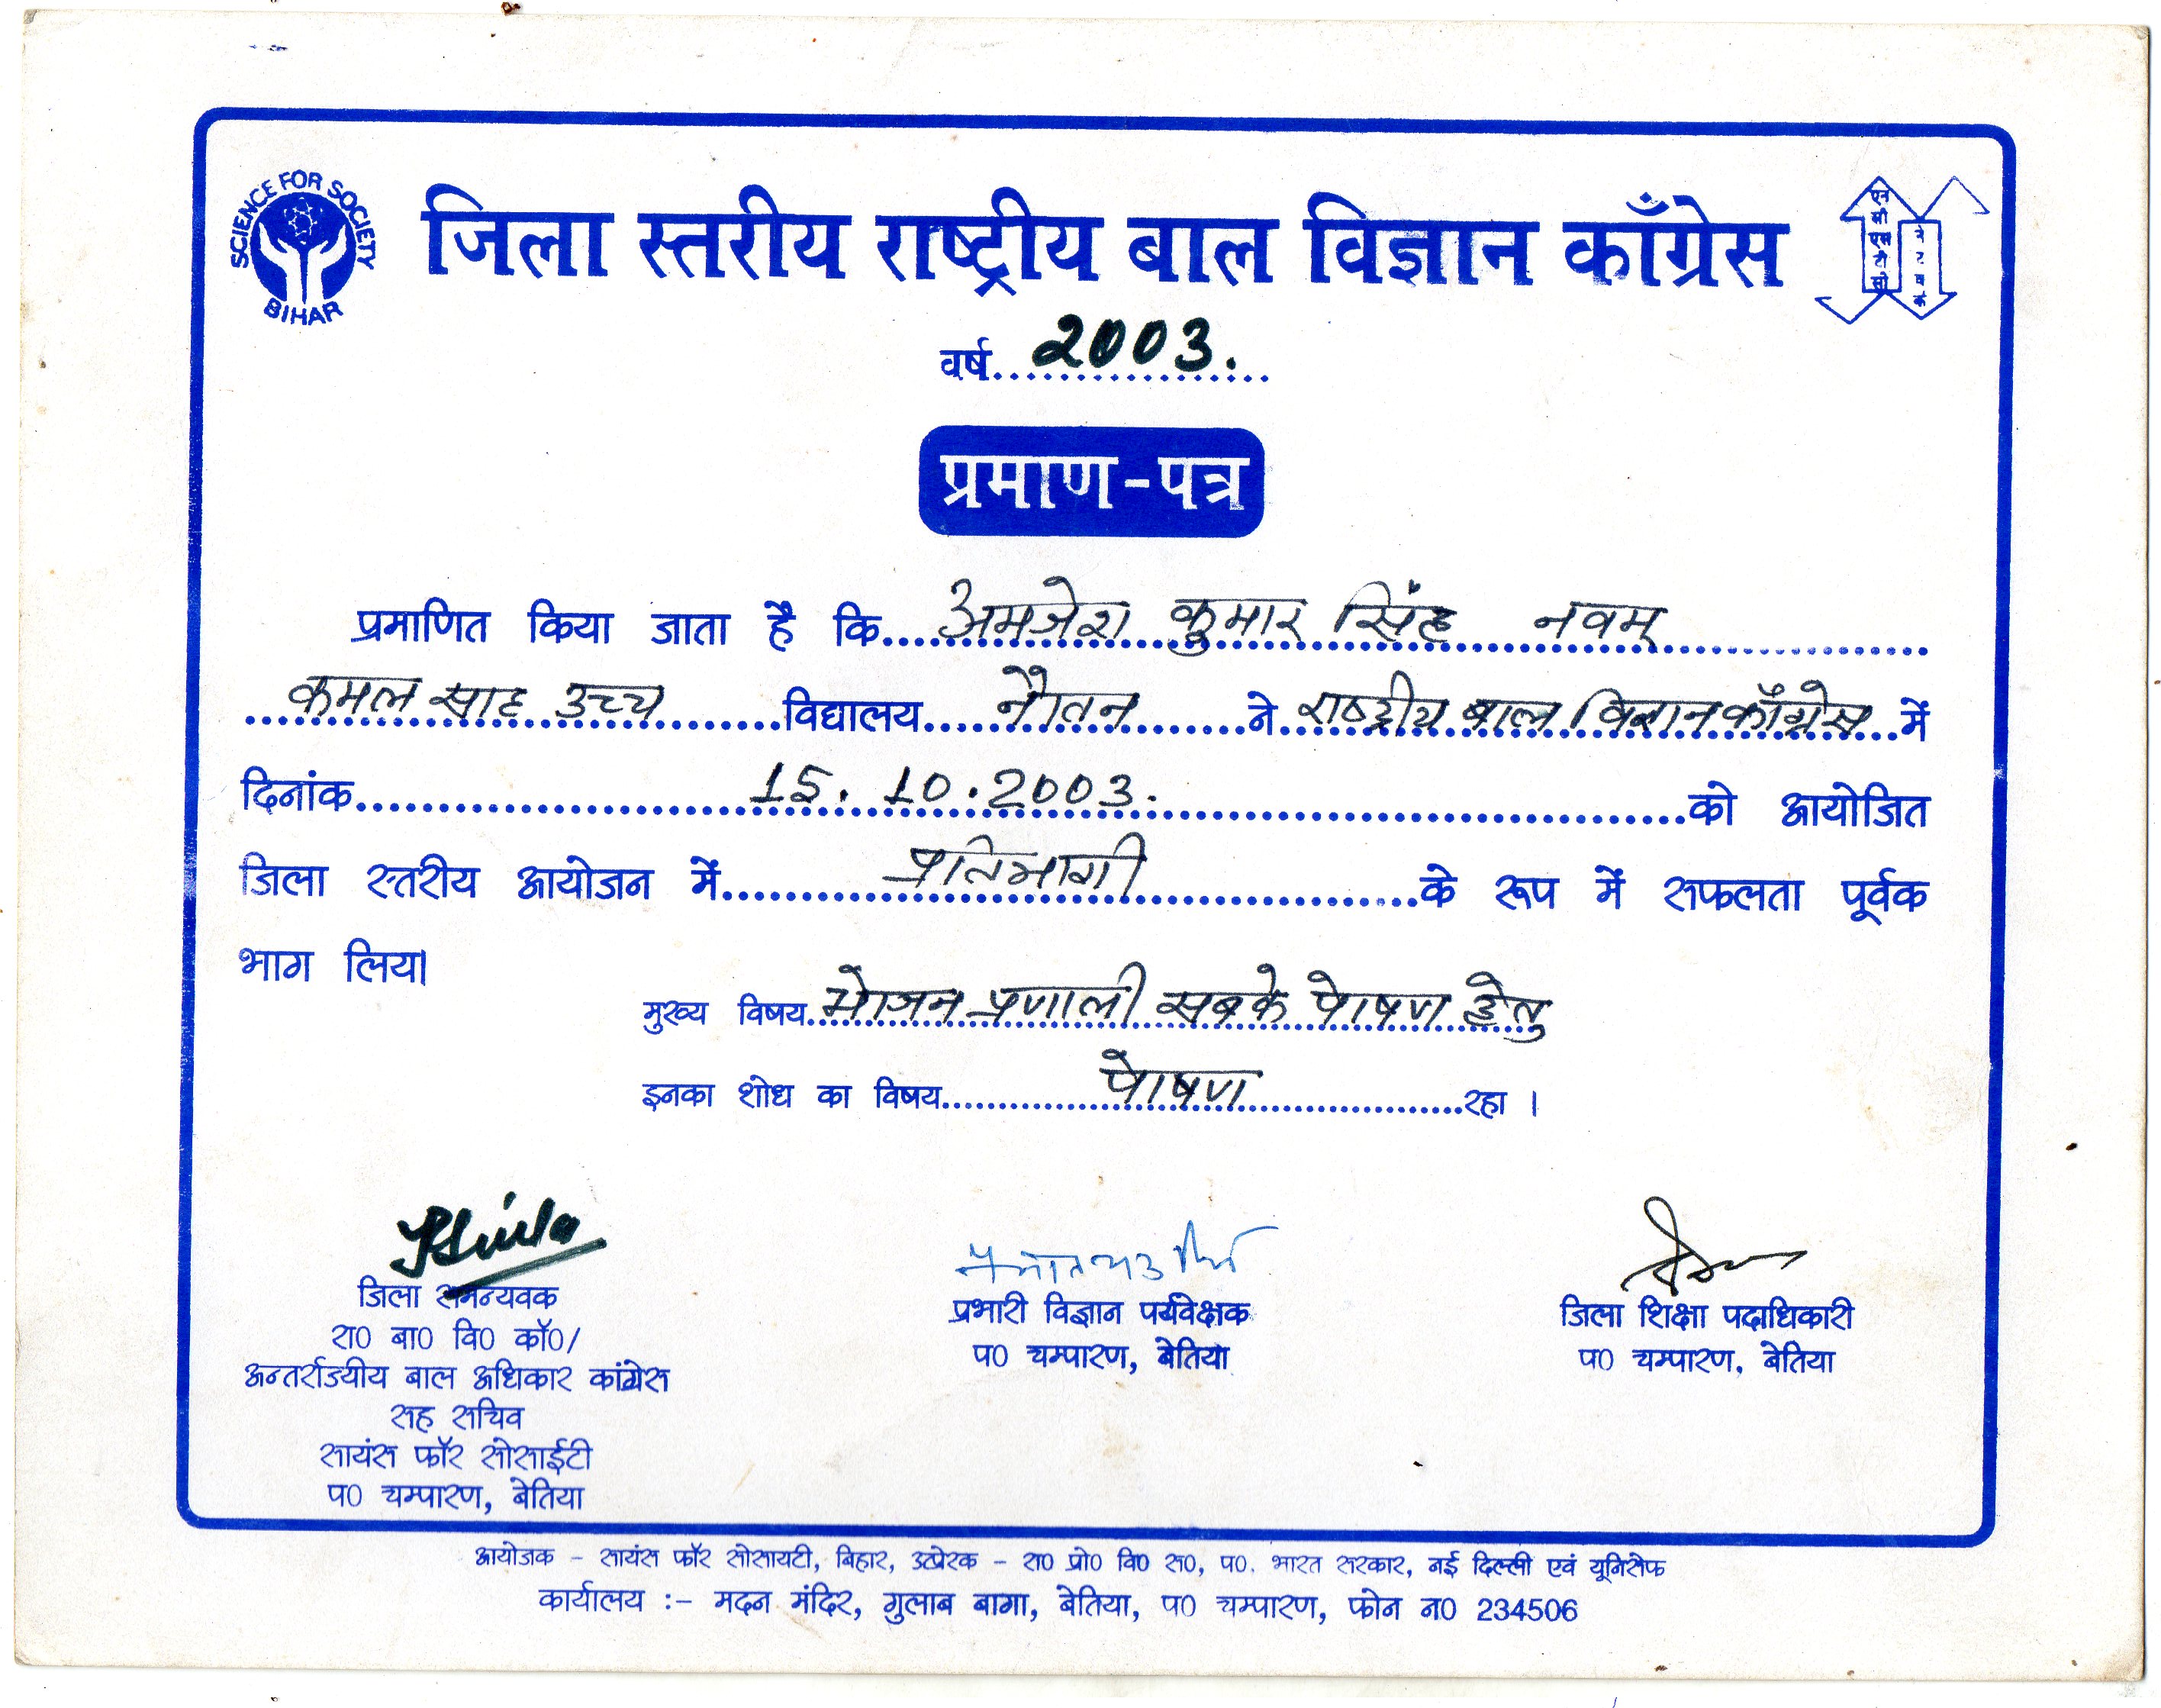 SCIENCE FOR SOCIETY
BIHAR
जिला स्तरीय राष्ट्रीय बाल विज्ञान काँग्रेस
एन सी एस टी सी
नेटवर्क
वर्ष 2003.
प्रमाण-पत्र
प्रमाणित किया जाता है कि अमजेश कुमार सिंह नवम्
कमल साह उच्च विद्यालय नौतन ने राष्ट्रीय बाल विज्ञान काँग्रेस में
दिनांक 15.10.2003. को आयोजित
जिला स्तरीय आयोजन में प्रतिभागी के रूप में सफलता पूर्वक
भाग लिया
मुख्य विषय भोजन प्रणाली सबके पोषण हेतु
इनका शोध का विषय पोषण रहा ।
जिला समन्यवक
रा0 बा0 वि0 कॉ0/
अन्तर्राज्यीय बाल अधिकार कांग्रेस
सह सचिव
सायंस फॉर सोसाईटी
प0 चम्पारण, बेतिया
प्रभारी विज्ञान पर्यवेक्षक
प0 चम्पारण, बेतिया
जिला शिक्षा पदाधिकारी
प0 चम्पारण, बेतिया
आयोजक - सायंस फॉर सोसायटी, बिहार, उत्प्रेरक - रा0 प्रो0 वि0 स0, प0. भारत सरकार, नई दिल्ली एवं यूनिसेफ
कार्यालय :- मदन मंदिर, गुलाब बागा, बेतिया, प0 चम्पारण, फोन न0 234506